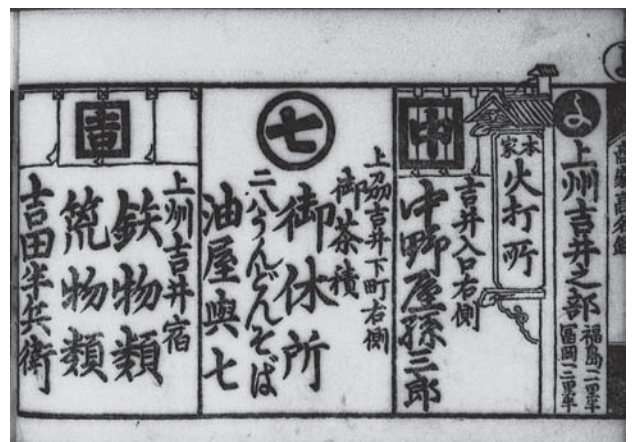 よ
上州吉井之部
福島 二里半
冨岡 二里半
本家
火打所
中
吉井入口右側
中野屋孫三郎
七
上刕吉井下町右側
御茶漬
御休所
二八うんどんそば
油屋與七
吉田
上州吉井宿
鉄物類
荒物類
吉田半兵衛